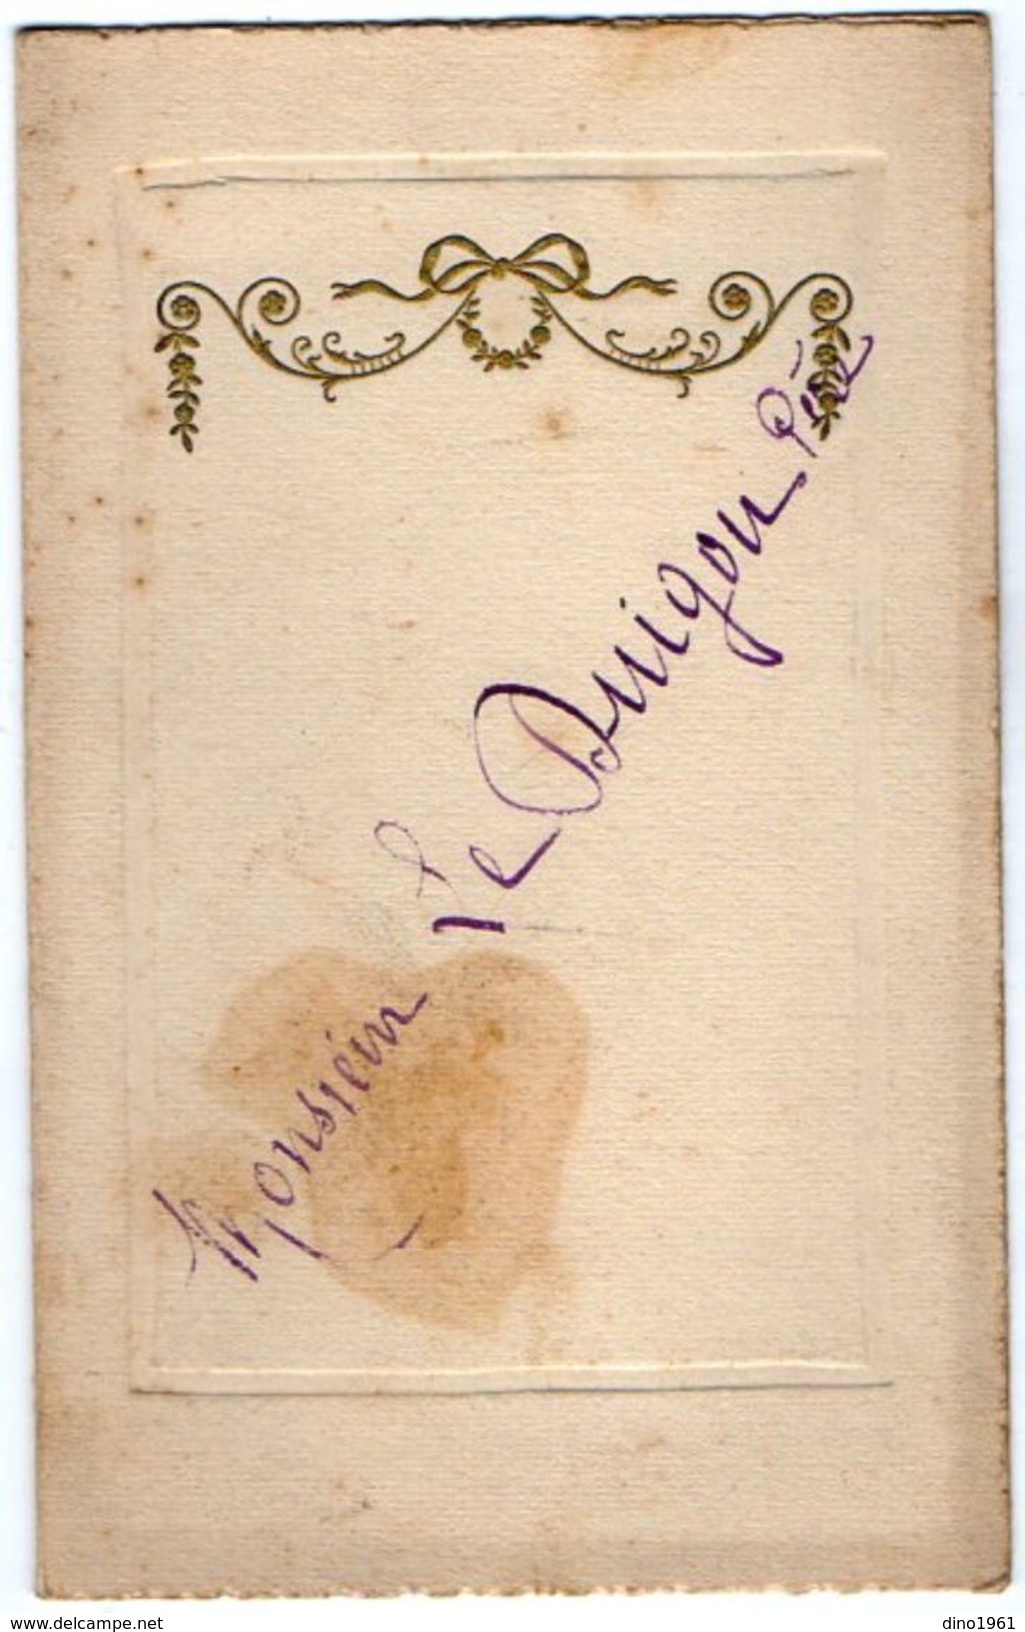 Monsieur Le Duigou Père
www.delcampe.net
dino1961